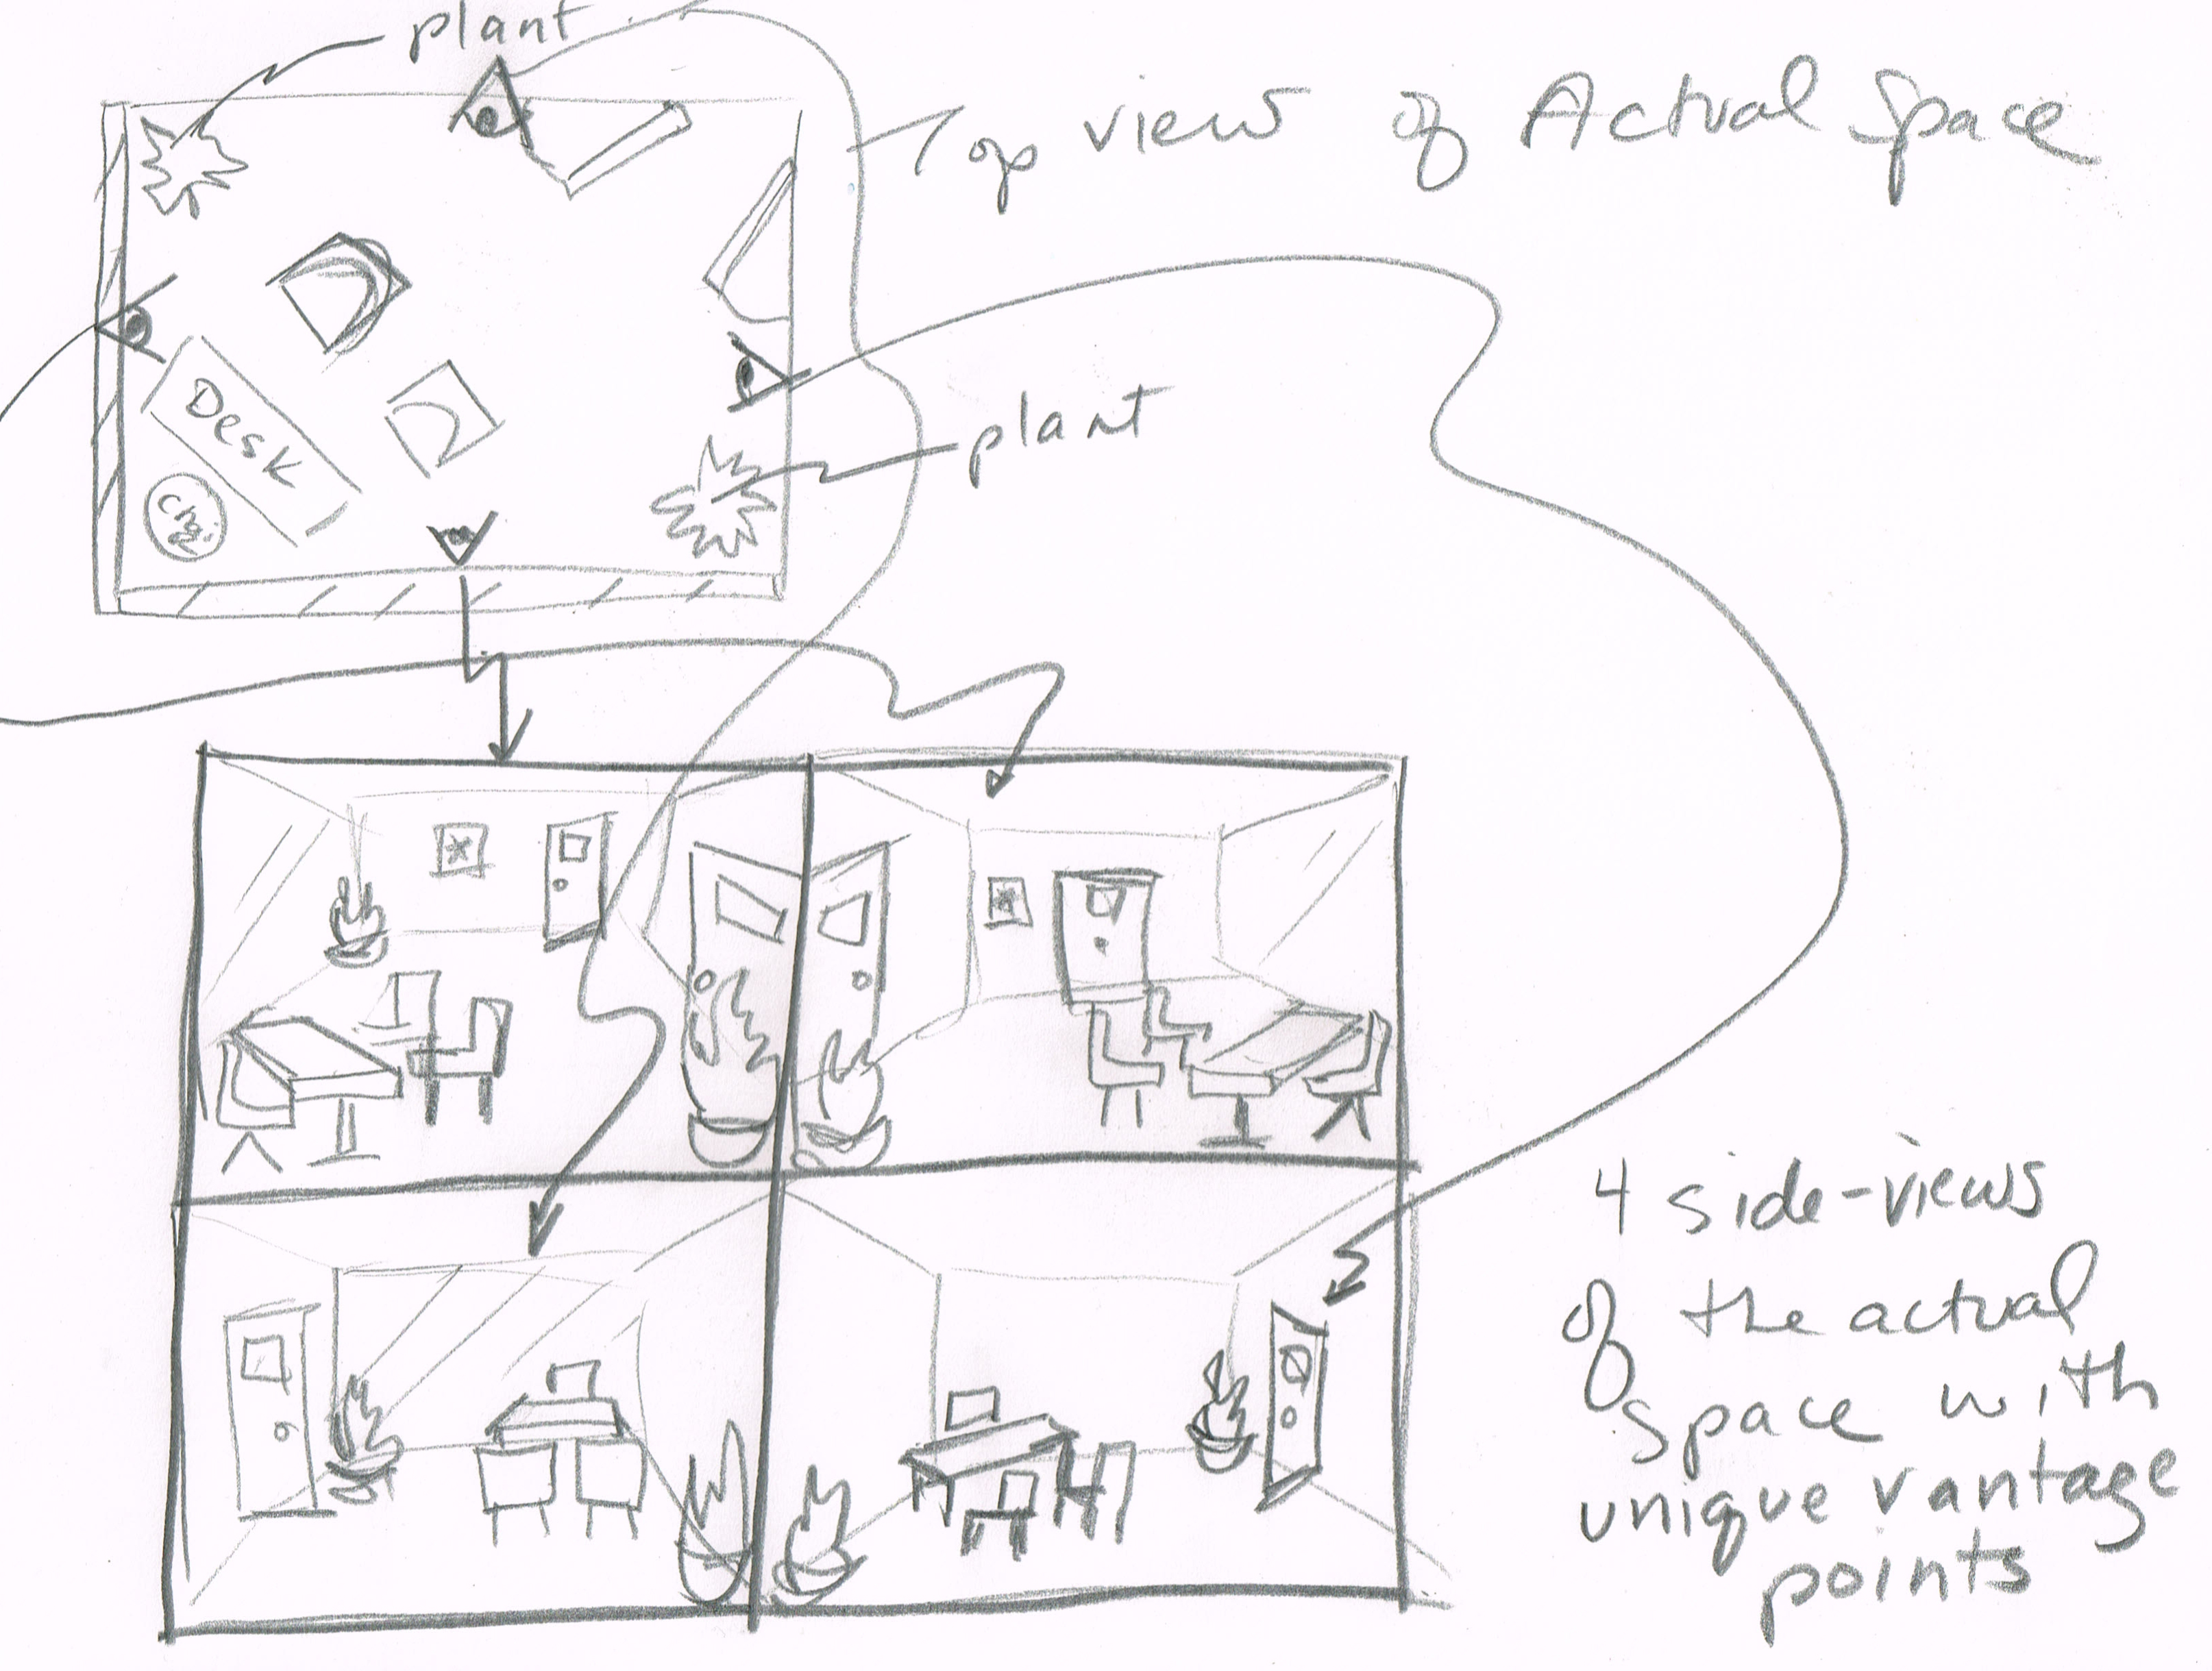 plant
Top view of Actual Space
Desk
Chair
plant
4 side-views
of the actual
space with
unique vantage
points